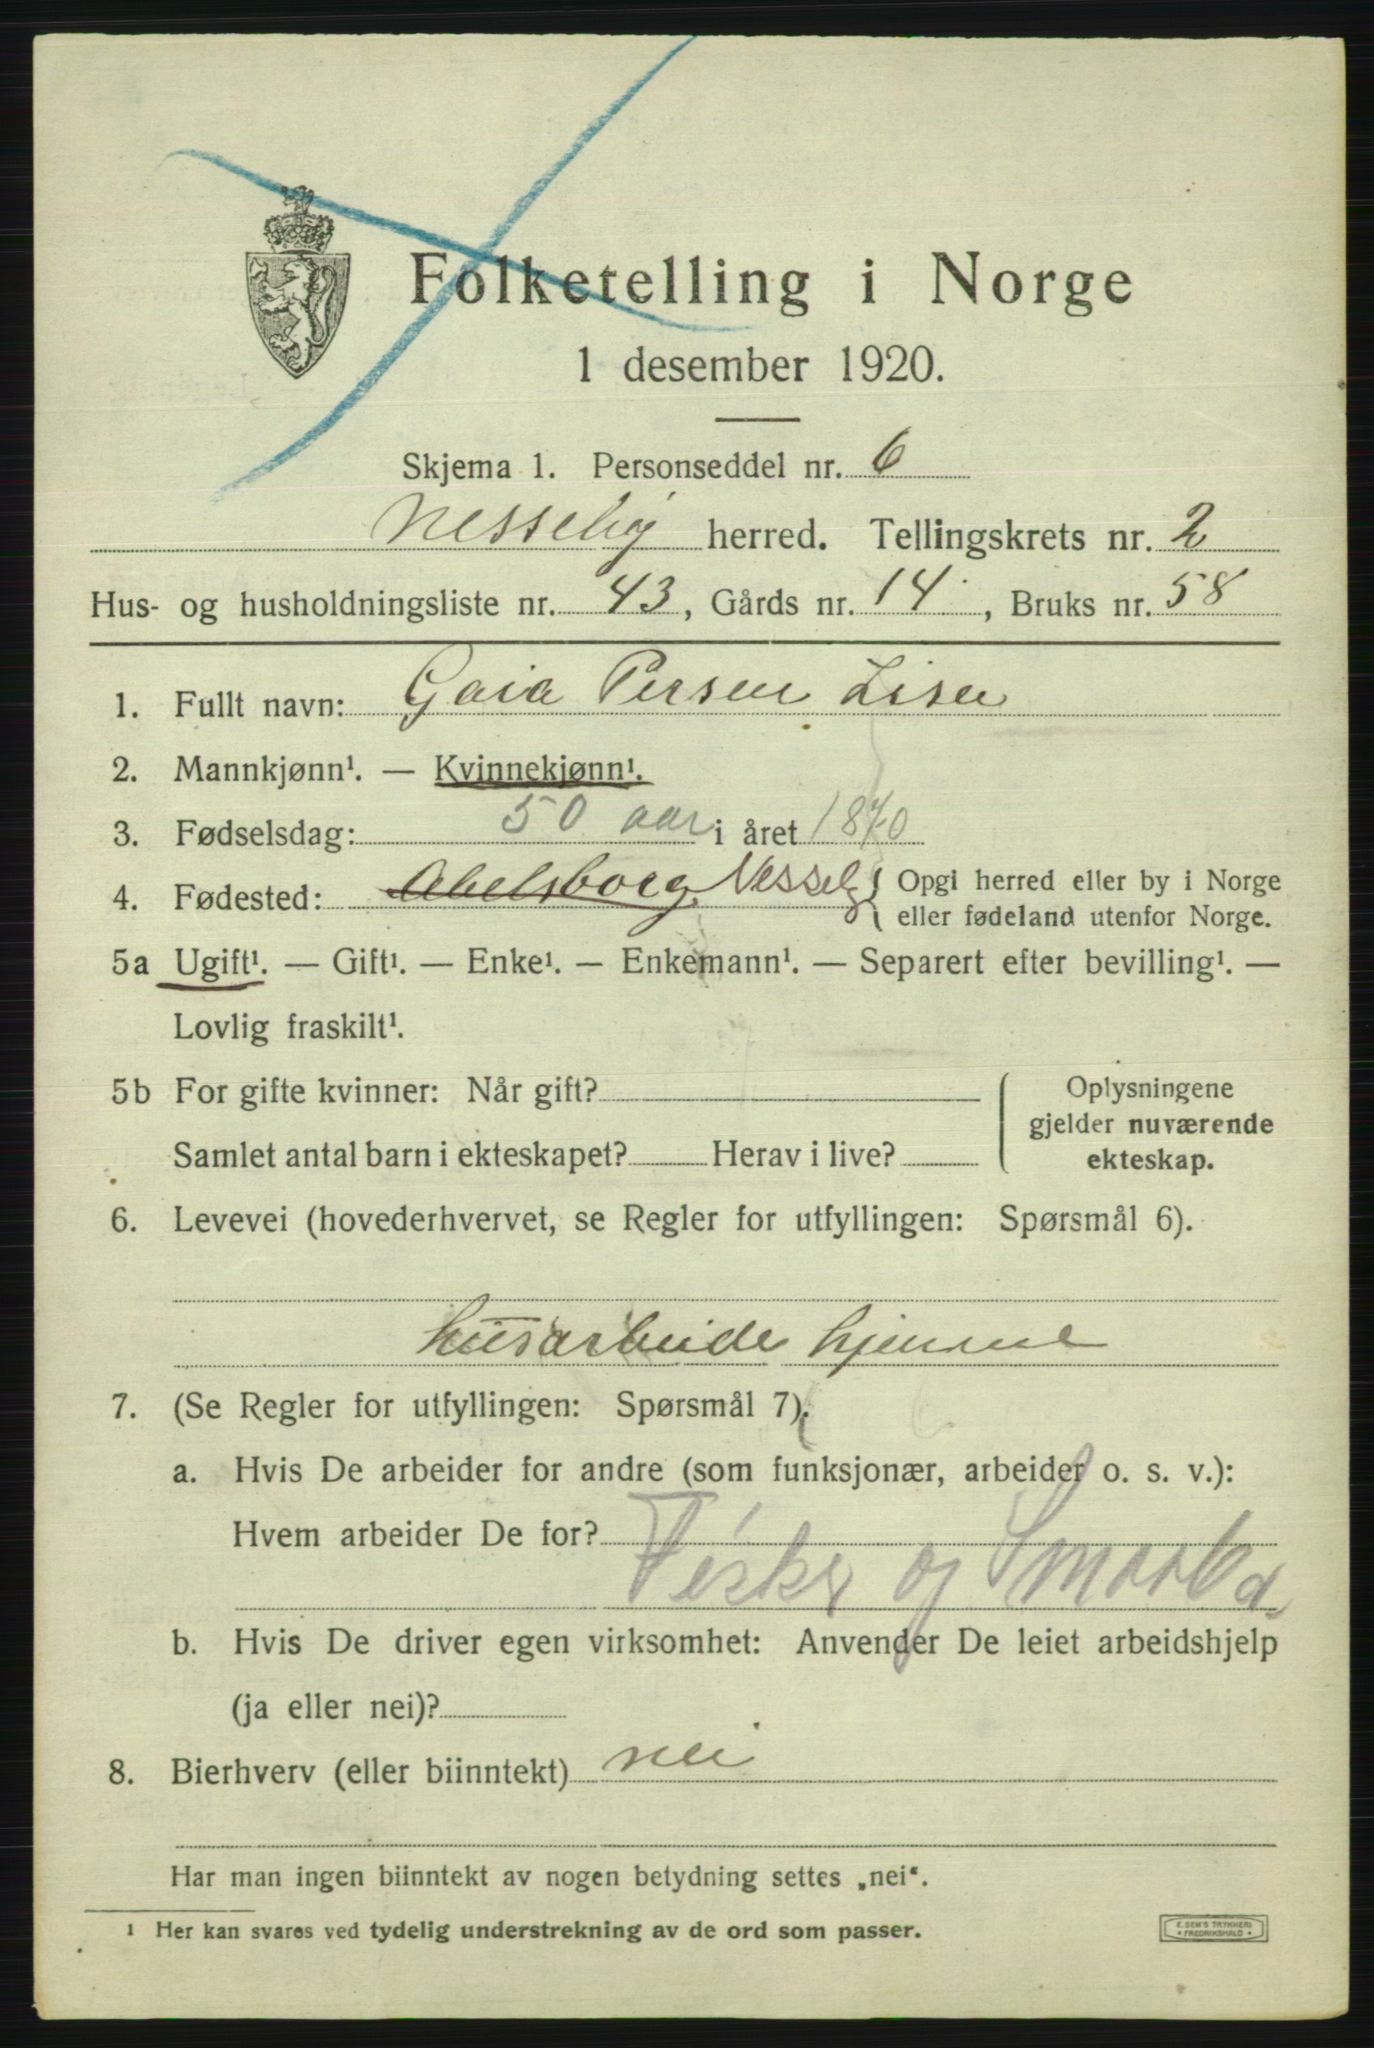 Folketelling i Norge
1 desember 1920.
Skjema 1. Personseddel nr. 6
Nesseby herred. Tellingskrets nr. 2
Hus- og husholdningsliste nr. 43, Gårds nr. 14, Bruks nr. 58
1. Fullt navn: Gaia Persen Lisen
2. Mannkjønn¹. — Kvinnekjønn¹.
3. Fødselsdag: 50 aar i året 1870
4. Fødested: Abelsborg Nesseby
Opgi herred eller by i Norge
eller fødeland utenfor Norge.
5a Ugift¹. — Gift¹. — Enke¹. — Enkemann¹. — Separert efter bevilling¹. —
Lovlig fraskilt¹.
5b For gifte kvinner: Når gift?
Samlet antal barn i ekteskapet? Herav i live?
Oplysningene
gjelder nuværende
ekteskap.
6. Levevei (hovederhvervet, se Regler for utfyllingen: Spørsmål 6).
husarbeide hjemme
7. (Se Regler for utfyllingen: Spørsmål 7).
a. Hvis De arbeider for andre (som funksjonær, arbeider o. s. v.):
Hvem arbeider De for?
Fisker og Smaab.
b. Hvis De driver egen virksomhet: Anvender De leiet arbeidshjelp
(ja eller nei)?
8. Bierhverv (eller biinntekt) nei
Har man ingen biinntekt av nogen betydning settes „nei“.
¹ Her kan svares ved tydelig understrekning av de ord som passer.
E. SEM'S TRYKKERI
* FREDRIKSHALD *